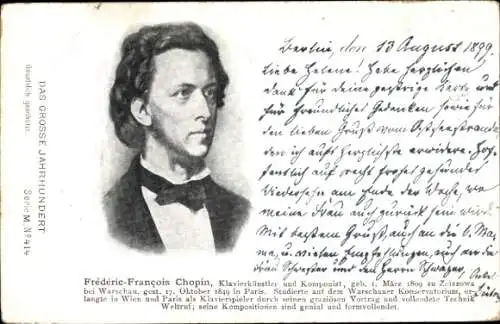 DAS GROSSE JAHRHUNDERT
Gesetzlich geschützt.
Serie M Nº 414
Berlin, den 13 August 1899.
Liebe Helene! Habe herzlichen
Dank für deine gestrige Karte und
für freundliches Gedenken sowie für
den lieben Gruß vom Ostseestrande
den ich aufs herzlichste erwidere. Hof-
fentlich auf recht frohes gesundes
Wiedersehen am Ende der Woche, wo
meine Frau auch zurück sein wird.
Mit bestem Gruß, auch an die
u. vielen Empfehlungen auch an die
Frau Schwester und den Herrn Schwager,
Frédéric-François Chopin, Klavierkünstler und Komponist, geb. 1. März 1809 zu Zelazowa
bei Warschau, gest. 17. Oktober 1849 in Paris. Studierte auf dem Warschauer Konservatorium, er-
langte in Wien und Paris als Klavierspieler durch seinen graziösen Vortrag und vollendete Technik
Weltruf; seine Kompositionen sind genial und formvollendet.